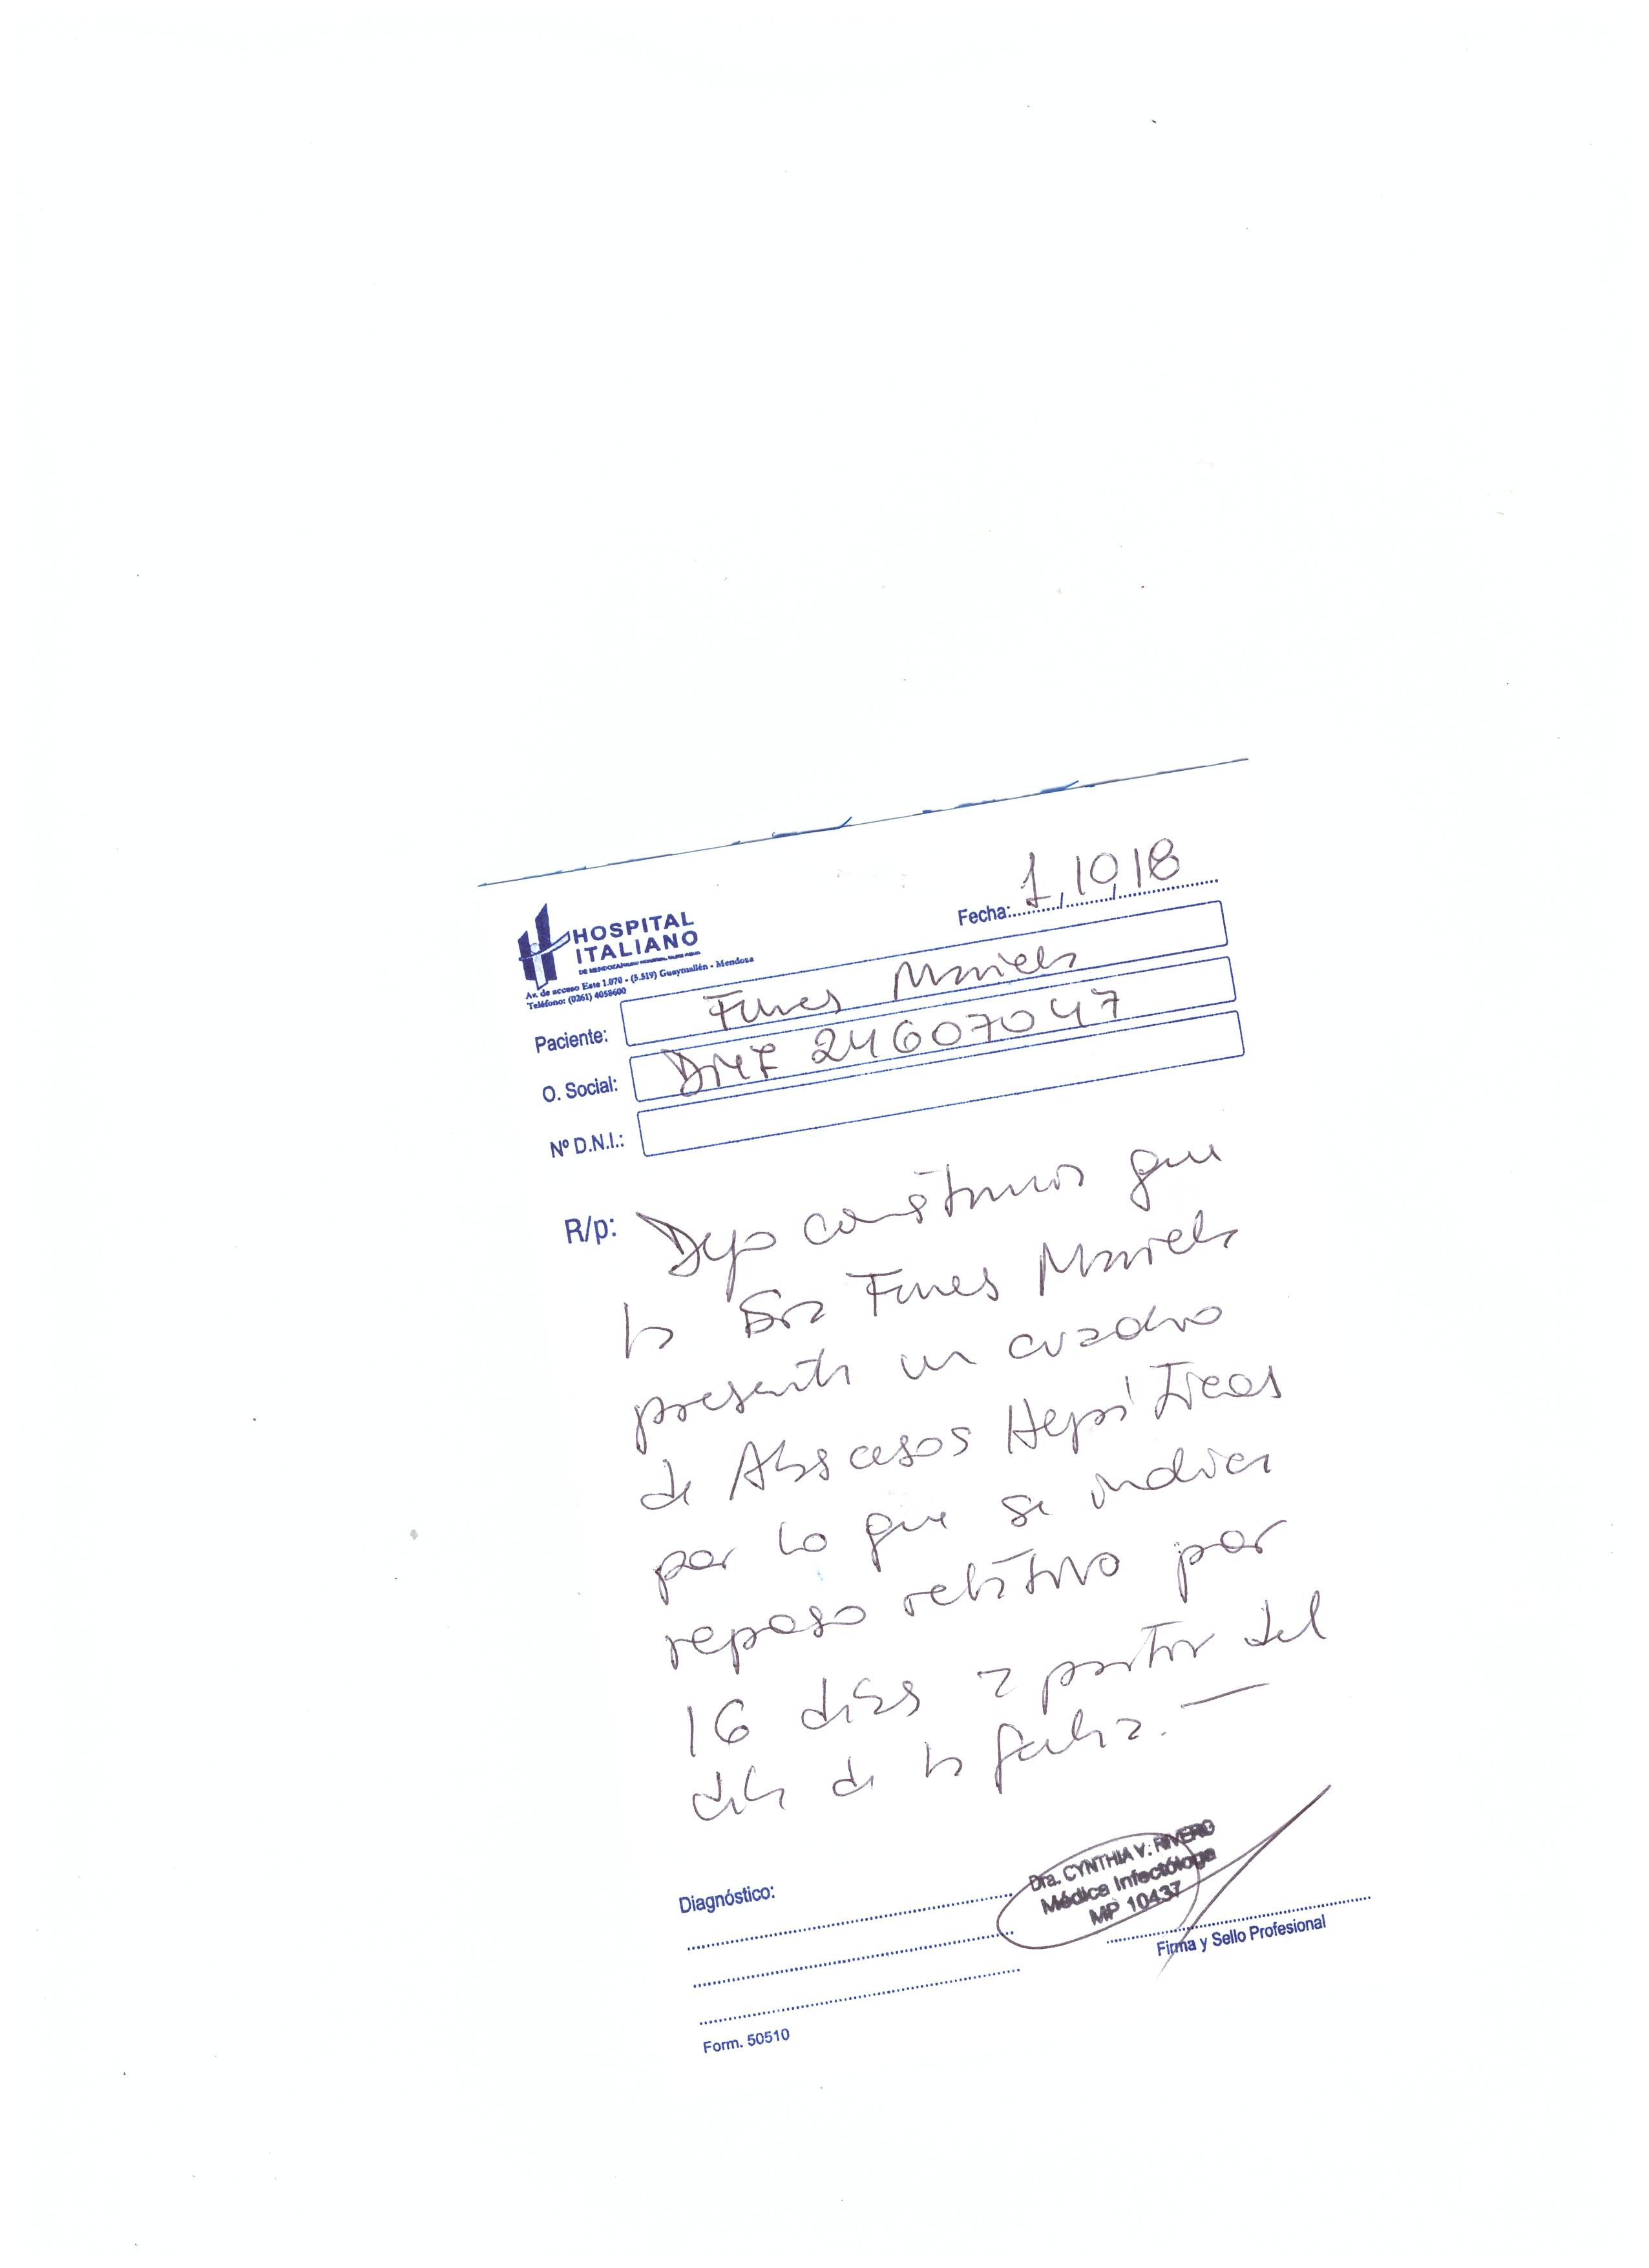 Fecha: 1/10/18
HOSPITAL
ITALIANO
Av. de acceso Este 1.070 - (5.519) Guaymallén - Mendoza
Teléfono: (0261) 4058600
Paciente: Funes Mariela
O. Social: 24607047
Nº D.N.I.:
R/p: Dejo constancia que
la Sra Funes Mariela
presenta un cuadro
de Abscesos Hepáticos
por lo que se indica
reposo relativo por
16 días a partir del
día de la fecha.—
Dra. CYNTHIA V. RIVERO
Médica Infectóloga
MP 10437
Diagnóstico:
Firma y Sello Profesional
Form. 50510